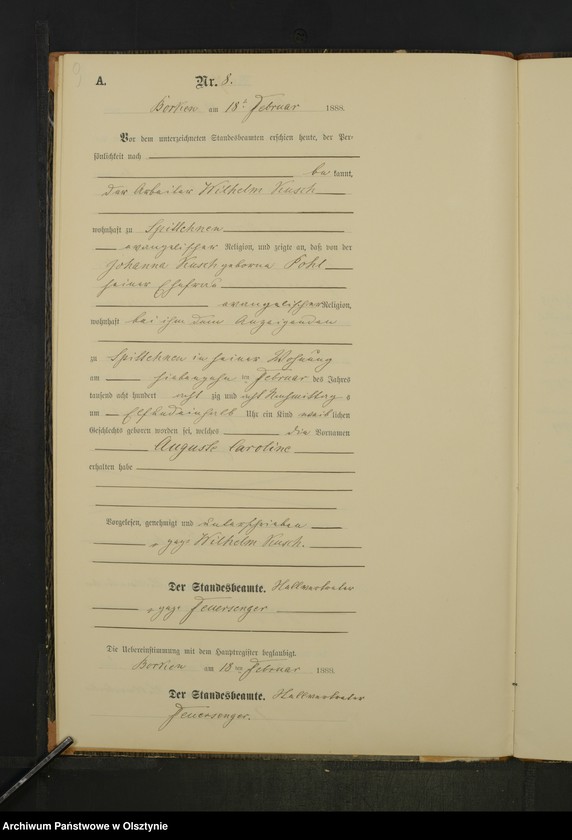 A.
Nr. 8.
Borken am 18t Februar 1888.
Vor dem unterzeichneten Standesbeamten erschien heute, der Per-
sönlichkeit nach
be kannt,
der Arbeiter Wilhelm Kusch
wohnhaft zu Spittehnen
evangelischer Religion, und zeigte an, daß von der
Johanna Kusch geborene Pohl
seiner Ehefrau
evangelischer Religion,
wohnhaft bei ihm dem Anzeigenden
zu Spittehnen in seiner Wohnung
am siebenzehn ten Februar des Jahres
tausend acht hundert acht zig und acht Nachmittag s
um Elfundeinhalb Uhr ein Kind weib lichen
Geschlechts geboren worden sei, welches die Vornamen
Auguste Caroline
erhalten habe
Vorgelesen, genehmigt und unterschrieben
gez. Wilhelm Kusch.
Der Standesbeamte. Stellvertreter
gez. Feuersenger
Die Uebereinstimmung mit dem Hauptregister beglaubigt.
Borken am 18 ten Februar 1888.
Der Standesbeamte. Stellvertreter
Feuersenger.
Archiwum Państwowe w Olsztynie